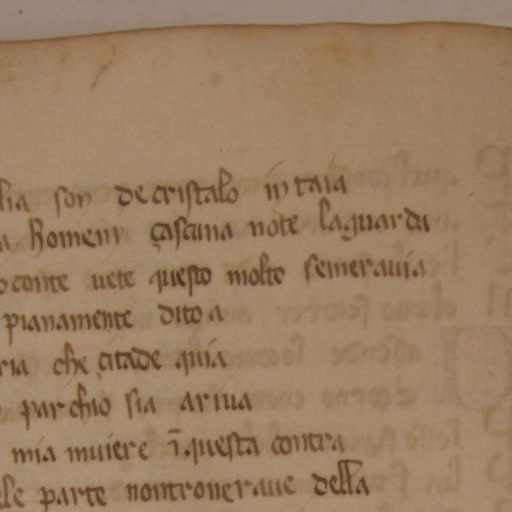 lia son de cristalo intaia
a homeni çascuna note laguarda
oconte uete questo molto semerauia
pianamente dito a
ria che çitade quia
par chio sia ariua
mia muiere ī questa contra
ele parte nontroueraue della